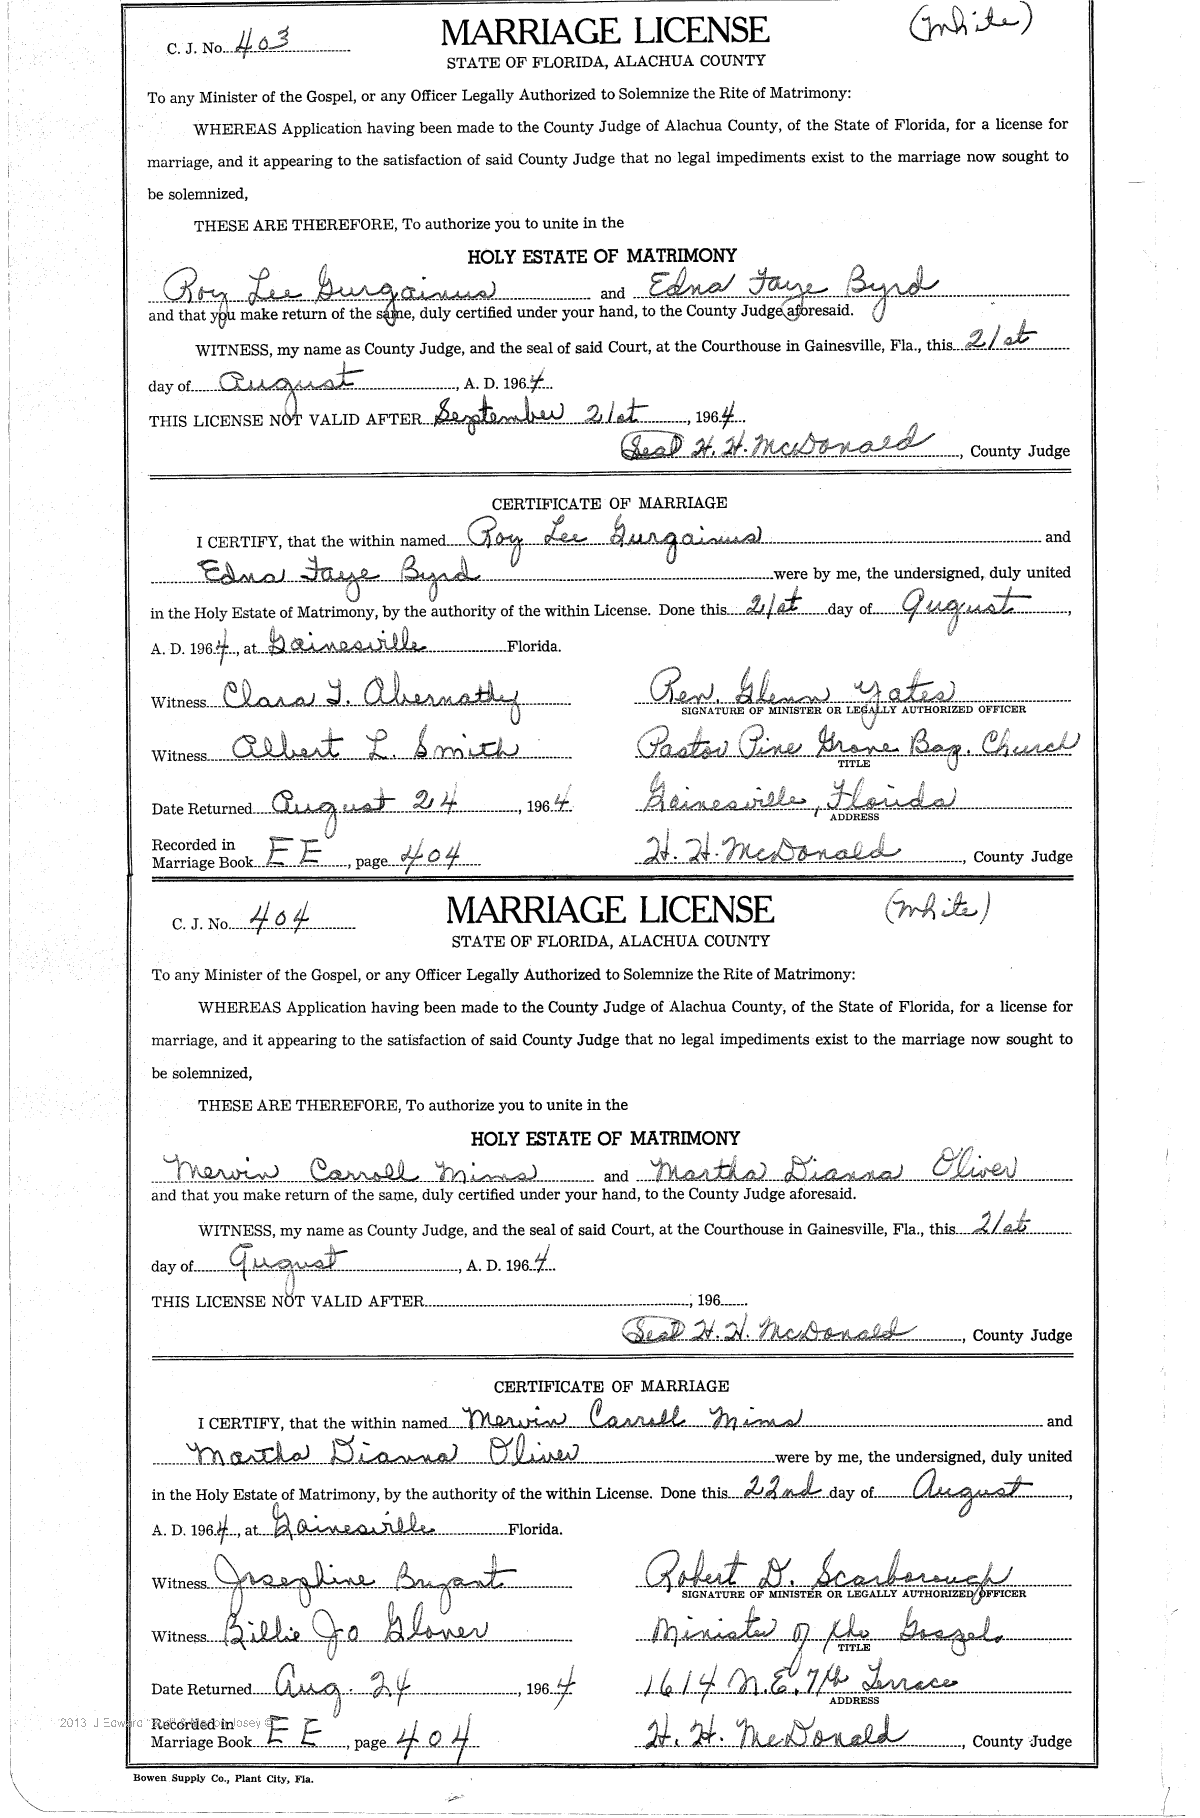 C. J. No. 403 MARRIAGE LICENSE (White)
STATE OF FLORIDA, ALACHUA COUNTY
To any Minister of the Gospel, or any Officer Legally Authorized to Solemnize the Rite of Matrimony:
WHEREAS Application having been made to the County Judge of Alachua County, of the State of Florida, for a license for
marriage, and it appearing to the satisfaction of said County Judge that no legal impediments exist to the marriage now sought to
be solemnized,
THESE ARE THEREFORE, To authorize you to unite in the
HOLY ESTATE OF MATRIMONY
Roy Lee Gurgainus and Edna Faye Byrd
and that you make return of the same, duly certified under your hand, to the County Judge aforesaid.
WITNESS, my name as County Judge, and the seal of said Court, at the Courthouse in Gainesville, Fla., this 21st
day of August, A. D. 1964.
THIS LICENSE NOT VALID AFTER September 21st, 1964.
(Seal) H. H. McDonald, County Judge
CERTIFICATE OF MARRIAGE
I CERTIFY, that the within named Roy Lee Gurgainus and
Edna Faye Byrd were by me, the undersigned, duly united
in the Holy Estate of Matrimony, by the authority of the within License. Done this 21st day of August,
A. D. 1964, at Gainesville Florida.
Witness Clara T. Abernathy Rev. Glenn Yates
SIGNATURE OF MINISTER OR LEGALLY AUTHORIZED OFFICER
Witness Albert L. Smith Pastor Pine Grove Bap. Church
TITLE
Date Returned August 24, 1964 Gainesville, Florida
ADDRESS
Recorded in
Marriage Book EE, page 404 H. H. McDonald, County Judge
C. J. No. 404 MARRIAGE LICENSE (White)
STATE OF FLORIDA, ALACHUA COUNTY
To any Minister of the Gospel, or any Officer Legally Authorized to Solemnize the Rite of Matrimony:
WHEREAS Application having been made to the County Judge of Alachua County, of the State of Florida, for a license for
marriage, and it appearing to the satisfaction of said County Judge that no legal impediments exist to the marriage now sought to
be solemnized,
THESE ARE THEREFORE, To authorize you to unite in the
HOLY ESTATE OF MATRIMONY
Mervin Carroll Mims and Martha Dianna Oliver
and that you make return of the same, duly certified under your hand, to the County Judge aforesaid.
WITNESS, my name as County Judge, and the seal of said Court, at the Courthouse in Gainesville, Fla., this 21st
day of August, A. D. 1964.
THIS LICENSE NOT VALID AFTER, 196
(Seal) H. H. McDonald, County Judge
CERTIFICATE OF MARRIAGE
I CERTIFY, that the within named Mervin Carroll Mims and
Martha Dianna Oliver were by me, the undersigned, duly united
in the Holy Estate of Matrimony, by the authority of the within License. Done this 22nd day of August,
A. D. 1964, at Gainesville Florida.
Witness Josephine Bryant Robert D. Scarborough
SIGNATURE OF MINISTER OR LEGALLY AUTHORIZED OFFICER
Witness Billie Jo Glover Minister of the Gospel
TITLE
Date Returned Aug. 24, 1964 1614 N.E. 7th Terrace
ADDRESS
2013 J Edward
Recorded in
Marriage Book EE, page 404 H. H. McDonald, County Judge
Bowen Supply Co., Plant City, Fla.